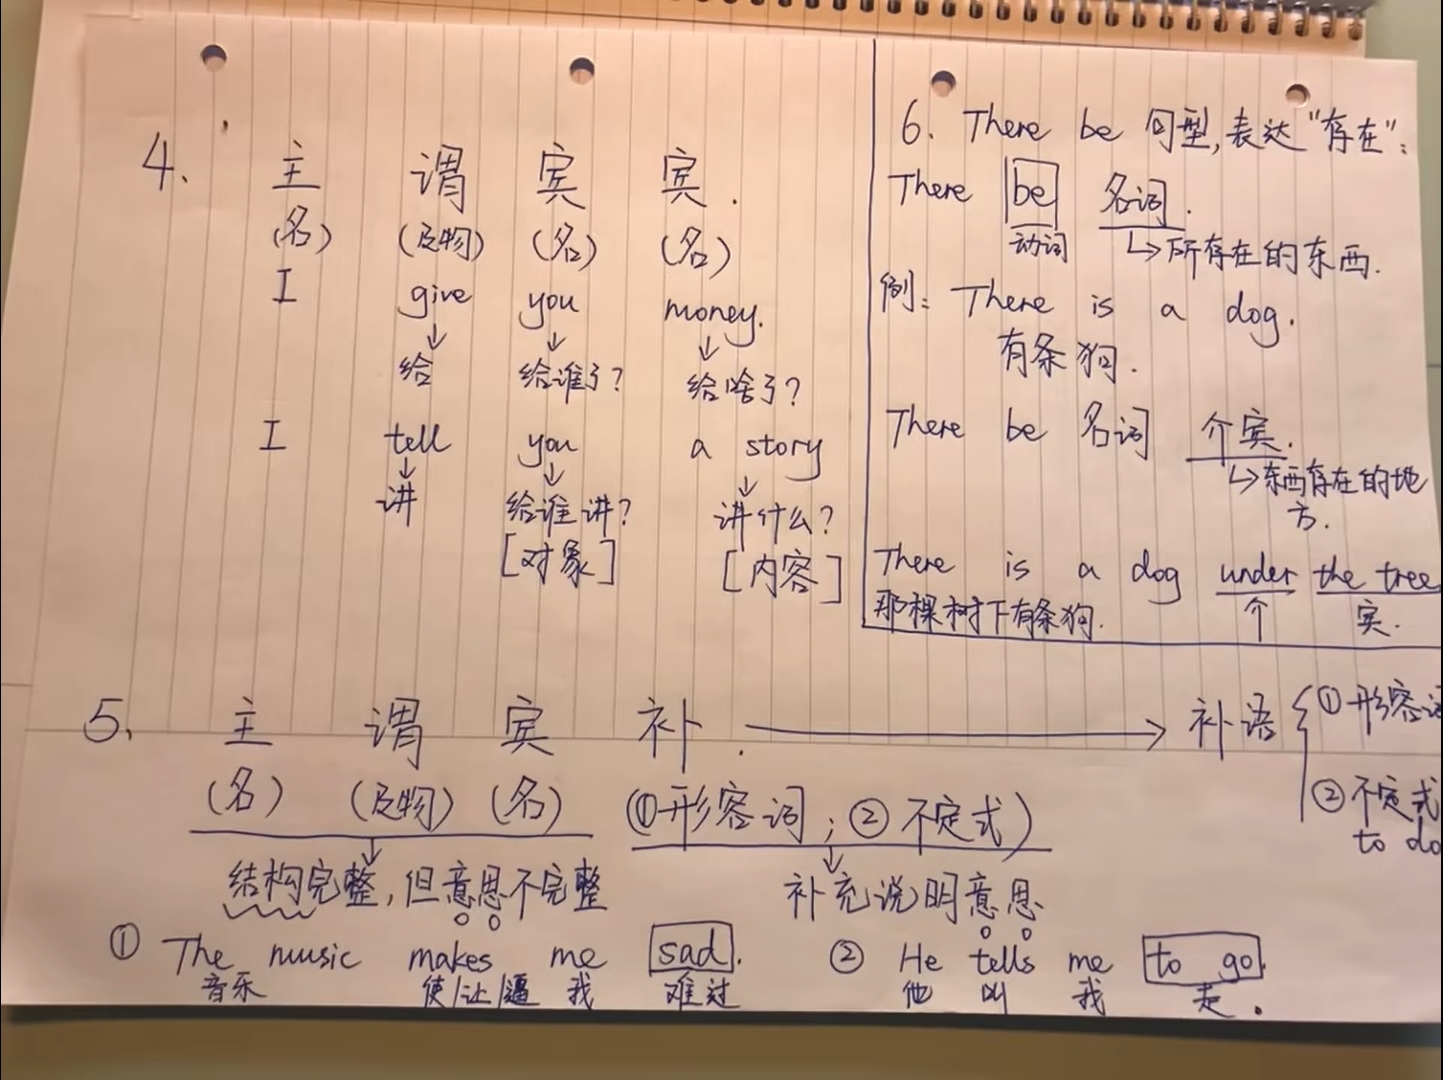 4. 主 谓 宾 宾.
(名) (及物) (名) (名)
I give you money.
给 给谁了? 给啥了?
I tell you a story
讲 给谁讲? 讲什么?
[对象] [内容]
6. There be 句型,表达"存在":
There be 名词.
动词 所存在的东西.
例: There is a dog.
有条狗.
There be 名词 介宾.
东西存在的地
方.
There is a dog under the tree
那棵树下有条狗. 介 宾.
5. 主 谓 宾 补. 补语 ①形容词
②不定式
to do
(名) (及物) (名) (①形容词; ②不定式)
结构完整,但意思不完整 补充说明意思
① The music makes me sad. ② He tells me to go.
音乐 使/让/逼 我 难过 他 叫 我 走.